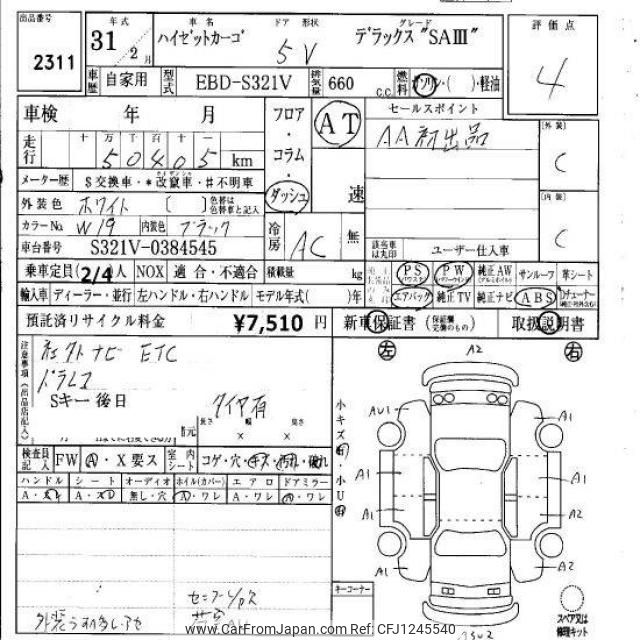 出品番号
2311
年式
31年 2月
車名
ハイゼットカーゴ
ドア 形状
5V
グレード
デラックス "SAⅢ"
評価点
4
車歴 自家用
型式 EBD-S321V
排気量 660 C.C.
燃料 ガソリン・( )・軽油
車検 年 月
走行 十 万 千 百 十 一
50405 km
メーター歴 $交換車・*改竄車・#不明車
フロア・コラム・ダッシュ
AT
速
セールスポイント
AA初出品
[外装]
C
[内装]
C
外装色 ホワイト [ ] 色替は色替車と記入
カラーNo. W19 内装色 ブラック
車台番号 S321V-0384545
冷房 AC 無
該当名は丸印 ユーザー仕入車
乗車定員 2/4人 NOX 適合・不適合 積載量 kg
PS パワステ PW パワーウィンド 純正AW (アルミホイル) サンルーフ 革シート
輸入車 ディーラー・並行 左ハンドル・右ハンドル モデル年式( )年
エアバック 純正TV 純正ナビ ABS Dチューナー
預託済リサイクル料金 ¥7,510円
新車保証書 (保証欄完備のもの) 取扱説明書
注意事項(出品店記入)
社外ナビ ETC
ドラレコ
Sキー後日
タイヤ有
諸元 長さ × 幅 × 高さ
左 A2 右
小キズ・小U
検査員記入 FW A・X要ス 室内シート コゲ・穴・キズ・汚れ・破れ
ハンドル シート オーディオ ホイル(カバー) エアロ ドアミラー
A・スレ A・スレ 無し・穴 A・ワレ A・ワレ A・ワレ
AU1 A1
A1 A1
A1 A2
A1 A2
キーコーナー
スペア又は修理キット